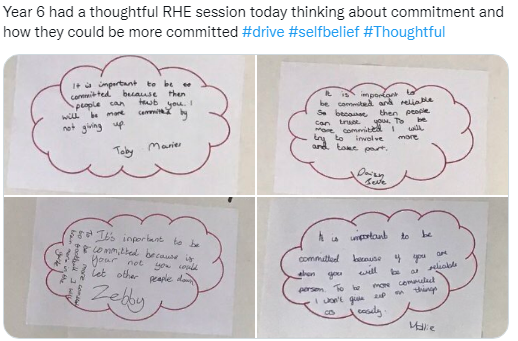 Year 6 had a thoughtful RHE session today thinking about commitment and
how they could be more committed #drive #selfbelief #Thoughtful
It is important to be
committed because then
people can you. I
will be more committed by
not giving up
Toby
It is important to
be commited and reliable
So because then people
can trust you. To be
more committed I will
try to involve more
and take part.
Daisy
Belle
It's inportant to be
committed because is
your not you could
let other people down
Zebby
It is important to be
committed because if you are
then you will be a reliable
person. To be more committed
I won't give up on things
as easily.